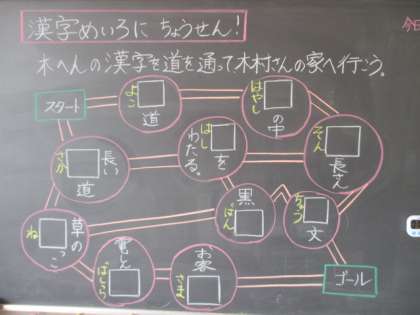 漢字めいろに ちょうせん!
今日
木へんの漢字を道を通って、木村さんの家へ行こう。
スタート
よこ
道
はやし
の中
そん
長さん
はし
を
わたる。
さか
長い
道
黒
ばん
ちゅう
文
ね
草の
っこ
電しん
ばしら
お客
さま
ゴール